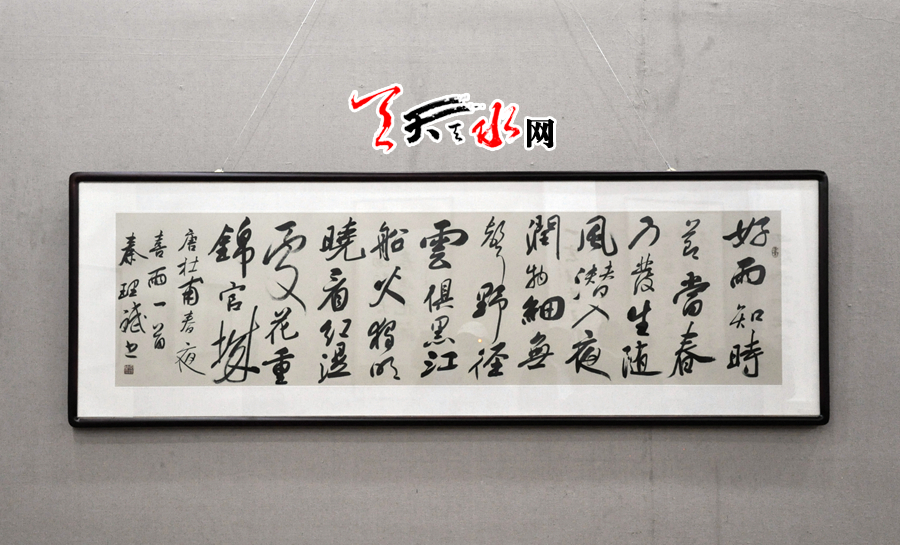 天天天水网
好雨知時
節當春
乃發生随
風潛入夜
潤物細無
聲野徑
雲俱黑江
船火獨明
曉看紅濕
處花重
錦官城
唐杜甫春夜
喜雨一首
秦理斌书